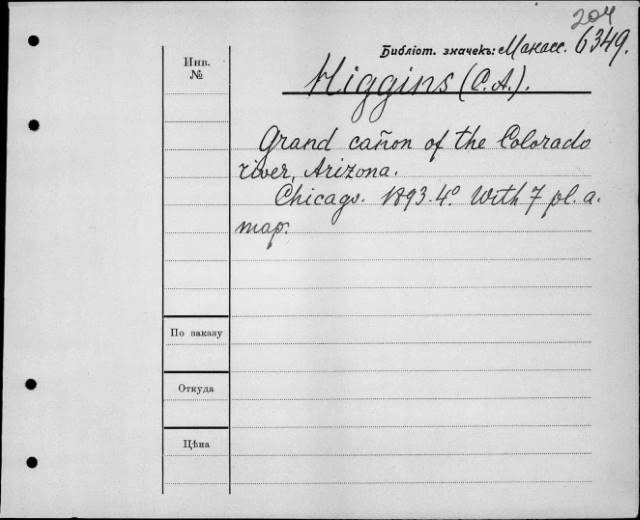 204
Библіот. значекъ: Макасс. 6349.
Инв.
№
Higgins (C.A.).
Grand cañon of the Colorado
river, Arizona.
Chicago. 1893. 4º. With 7 pl. a.
map.
По заказу
Откуда
Цѣна